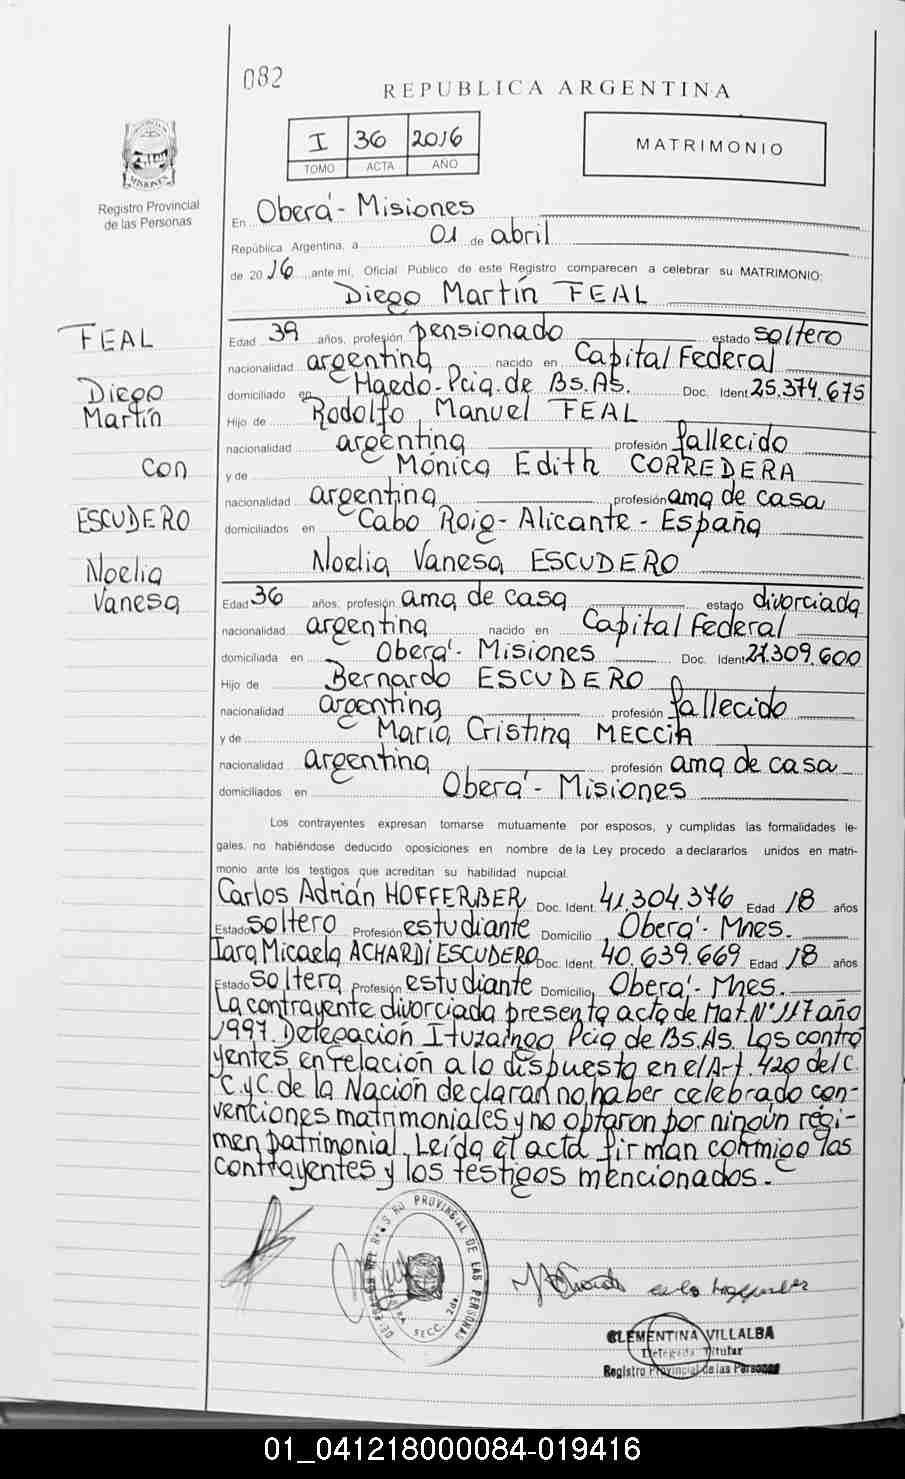 082
REPUBLICA ARGENTINA
I 36 2016
TOMO ACTA AÑO
MATRIMONIO
MISIONES
Registro Provincial
de las Personas
En Oberá - Misiones
República Argentina, a 01 de abril
de 2016, ante mí, Oficial Público de este Registro comparecen a celebrar su MATRIMONIO:
Diego Martín FEAL
FEAL
Diego
Martín
con
ESCUDERO
Noelia
Vanesa
Edad 39 años, profesión pensionado estado soltero
nacionalidad argentina nacido en Capital Federal
domiciliado en Haedo - Pcia. de Bs. As. Doc. Ident 25.374.675
Hijo de Rodolfo Manuel FEAL
nacionalidad argentina profesión fallecido
y de Mónica Edith CORREDERA
nacionalidad argentina profesión ama de casa
domiciliados en Cabo Roig - Alicante - España
Noelia Vanesa ESCUDERO
Edad 36 años, profesión ama de casa estado divorciada
nacionalidad argentina nacido en Capital Federal
domiciliada en Oberá - Misiones Doc. Ident 27.309.600
Hijo de Bernardo ESCUDERO
nacionalidad argentina profesión fallecido
y de María Cristina MECCIA
nacionalidad argentina profesión ama de casa
domiciliados en Oberá - Misiones
Los contrayentes expresan tomarse mutuamente por esposos, y cumplidas las formalidades le-
gales, no habiéndose deducido oposiciones en nombre de la Ley procedo a declararlos unidos en matri-
monio ante los testigos que acreditan su habilidad nupcial.
Carlos Adrián HOFFERBER Doc. Ident. 41.304.376 Edad 18 años
Estado soltero Profesión estudiante Domicilio Oberá - Mnes.
Iara Micaela ACHARDI ESCUDERO Doc. Ident. 40.639.669 Edad 18 años
Estado soltera Profesión estudiante Domicilio Oberá - Mnes.
La contrayente divorciada presenta acta de Mat. N° 117 año
1997. Delegación Ituzaingo Pcia de Bs. As. Los contra
yentes en relación a lo dispuesto en el Art. 420 del C.
C. y C. de la Nación declaran no haber celebrado con-
venciones matrimoniales y no optaron por ningún régi-
men patrimonial. Leída el acta firman conmigo los
contrayentes y los testigos mencionados.
PROVINCIAL DE LAS PERSONAS
SECC. 2da
CLEMENTINA VILLALBA
Delegada Titular
Registro Provincial de las Personas
01_041218000084-019416